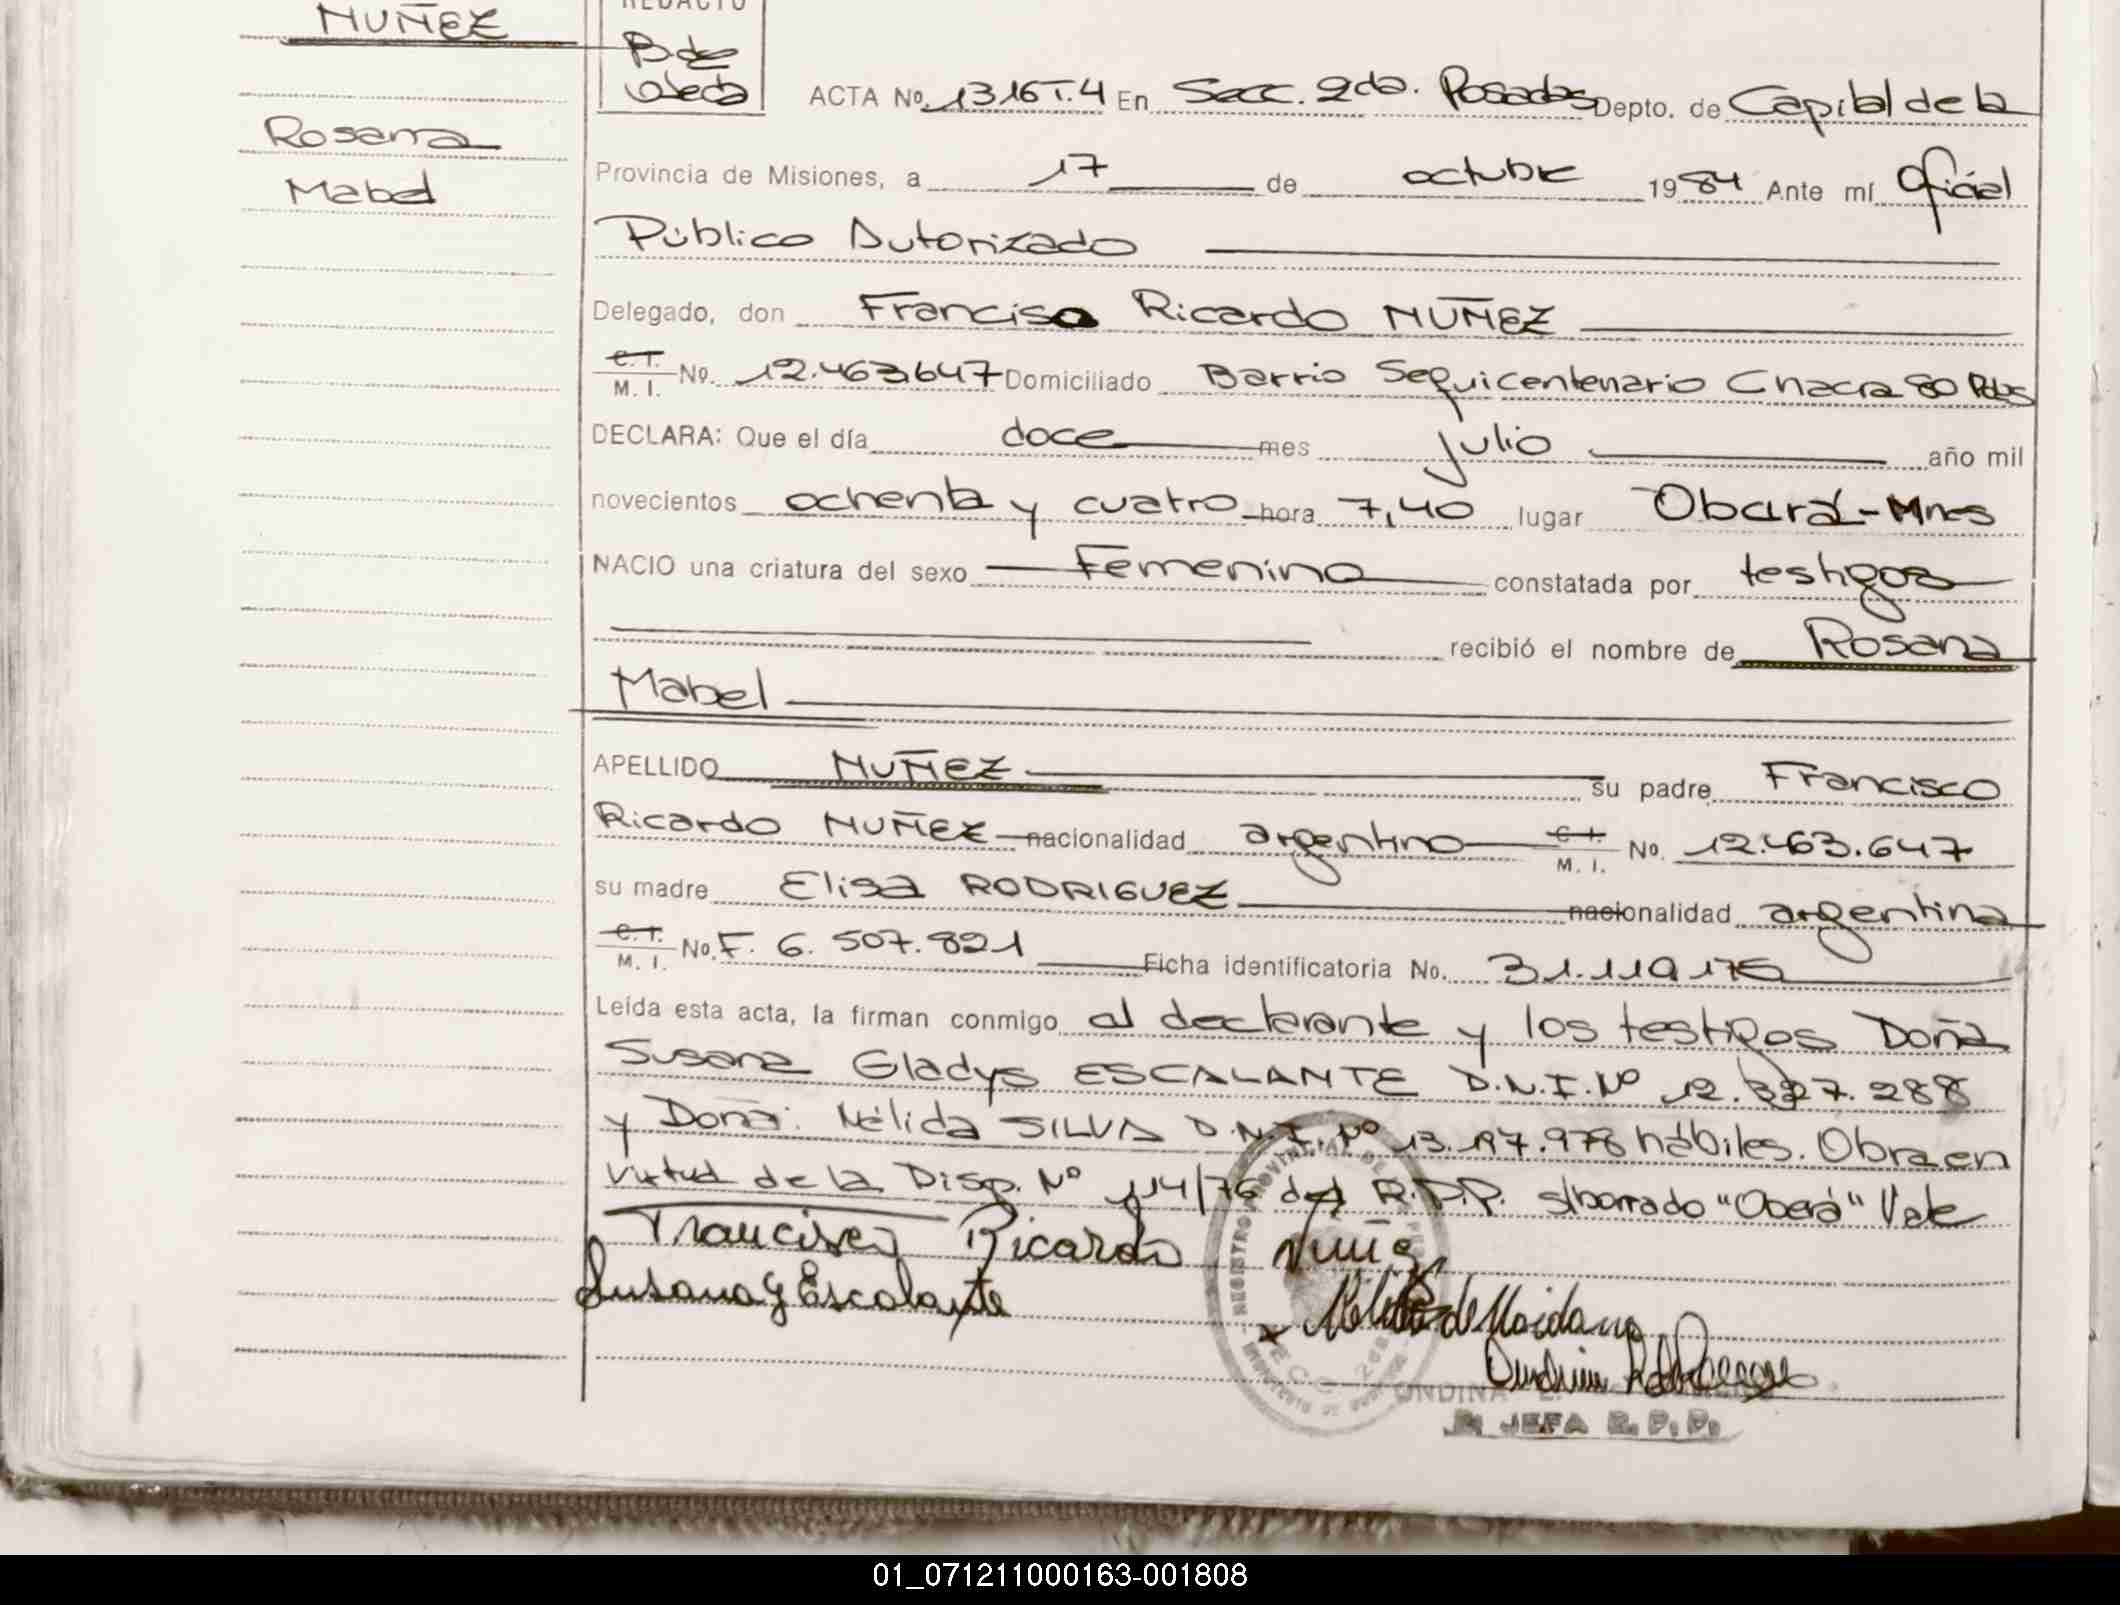 NUÑEZ
REDACTO
B. de
Ojeda
Rosana
Mabel
ACTA Nº 1316 T.4 En Secc. 2da. Posadas Depto. de Capital de la
Provincia de Misiones, a 17 de octubre 1984 Ante mí Oficial
Público Autorizado
Delegado, don Francisco Ricardo NUÑEZ
C. I. M. I. Nº. 12.463.647 Domiciliado Barrio Sequicentenario Chacra 80 Pdas
DECLARA: Que el día doce mes julio año mil
novecientos ochenta y cuatro hora 7,40 lugar Oberá-Mnes
NACIO una criatura del sexo Femenino constatada por testigos
recibió el nombre de Rosana
Mabel
APELLIDO NUÑEZ su padre Francisco
Ricardo NUÑEZ nacionalidad argentino C. I. M. I. Nº. 12.463.647
su madre Elisa RODRIGUEZ nacionalidad argentina
C. I. M. I. Nº. F. 6.507.821 Ficha identificatoria No. 31.110.175
Leída esta acta, la firman conmigo el declarante y los testigos Doña
Susana Gladys ESCALANTE D.N.I. Nº 12.327.288
y Doña: Nélida SILVA D.N.I. Nº 13.197.978 hábiles. Obra en
virtud de la Disp. Nº 114/76 del R.P.P. s/borrado "Oberá" Vale
Francisco Ricardo Nuñez
Susana G Escalante
JEFA R. P. P.
01_071211000163-001808